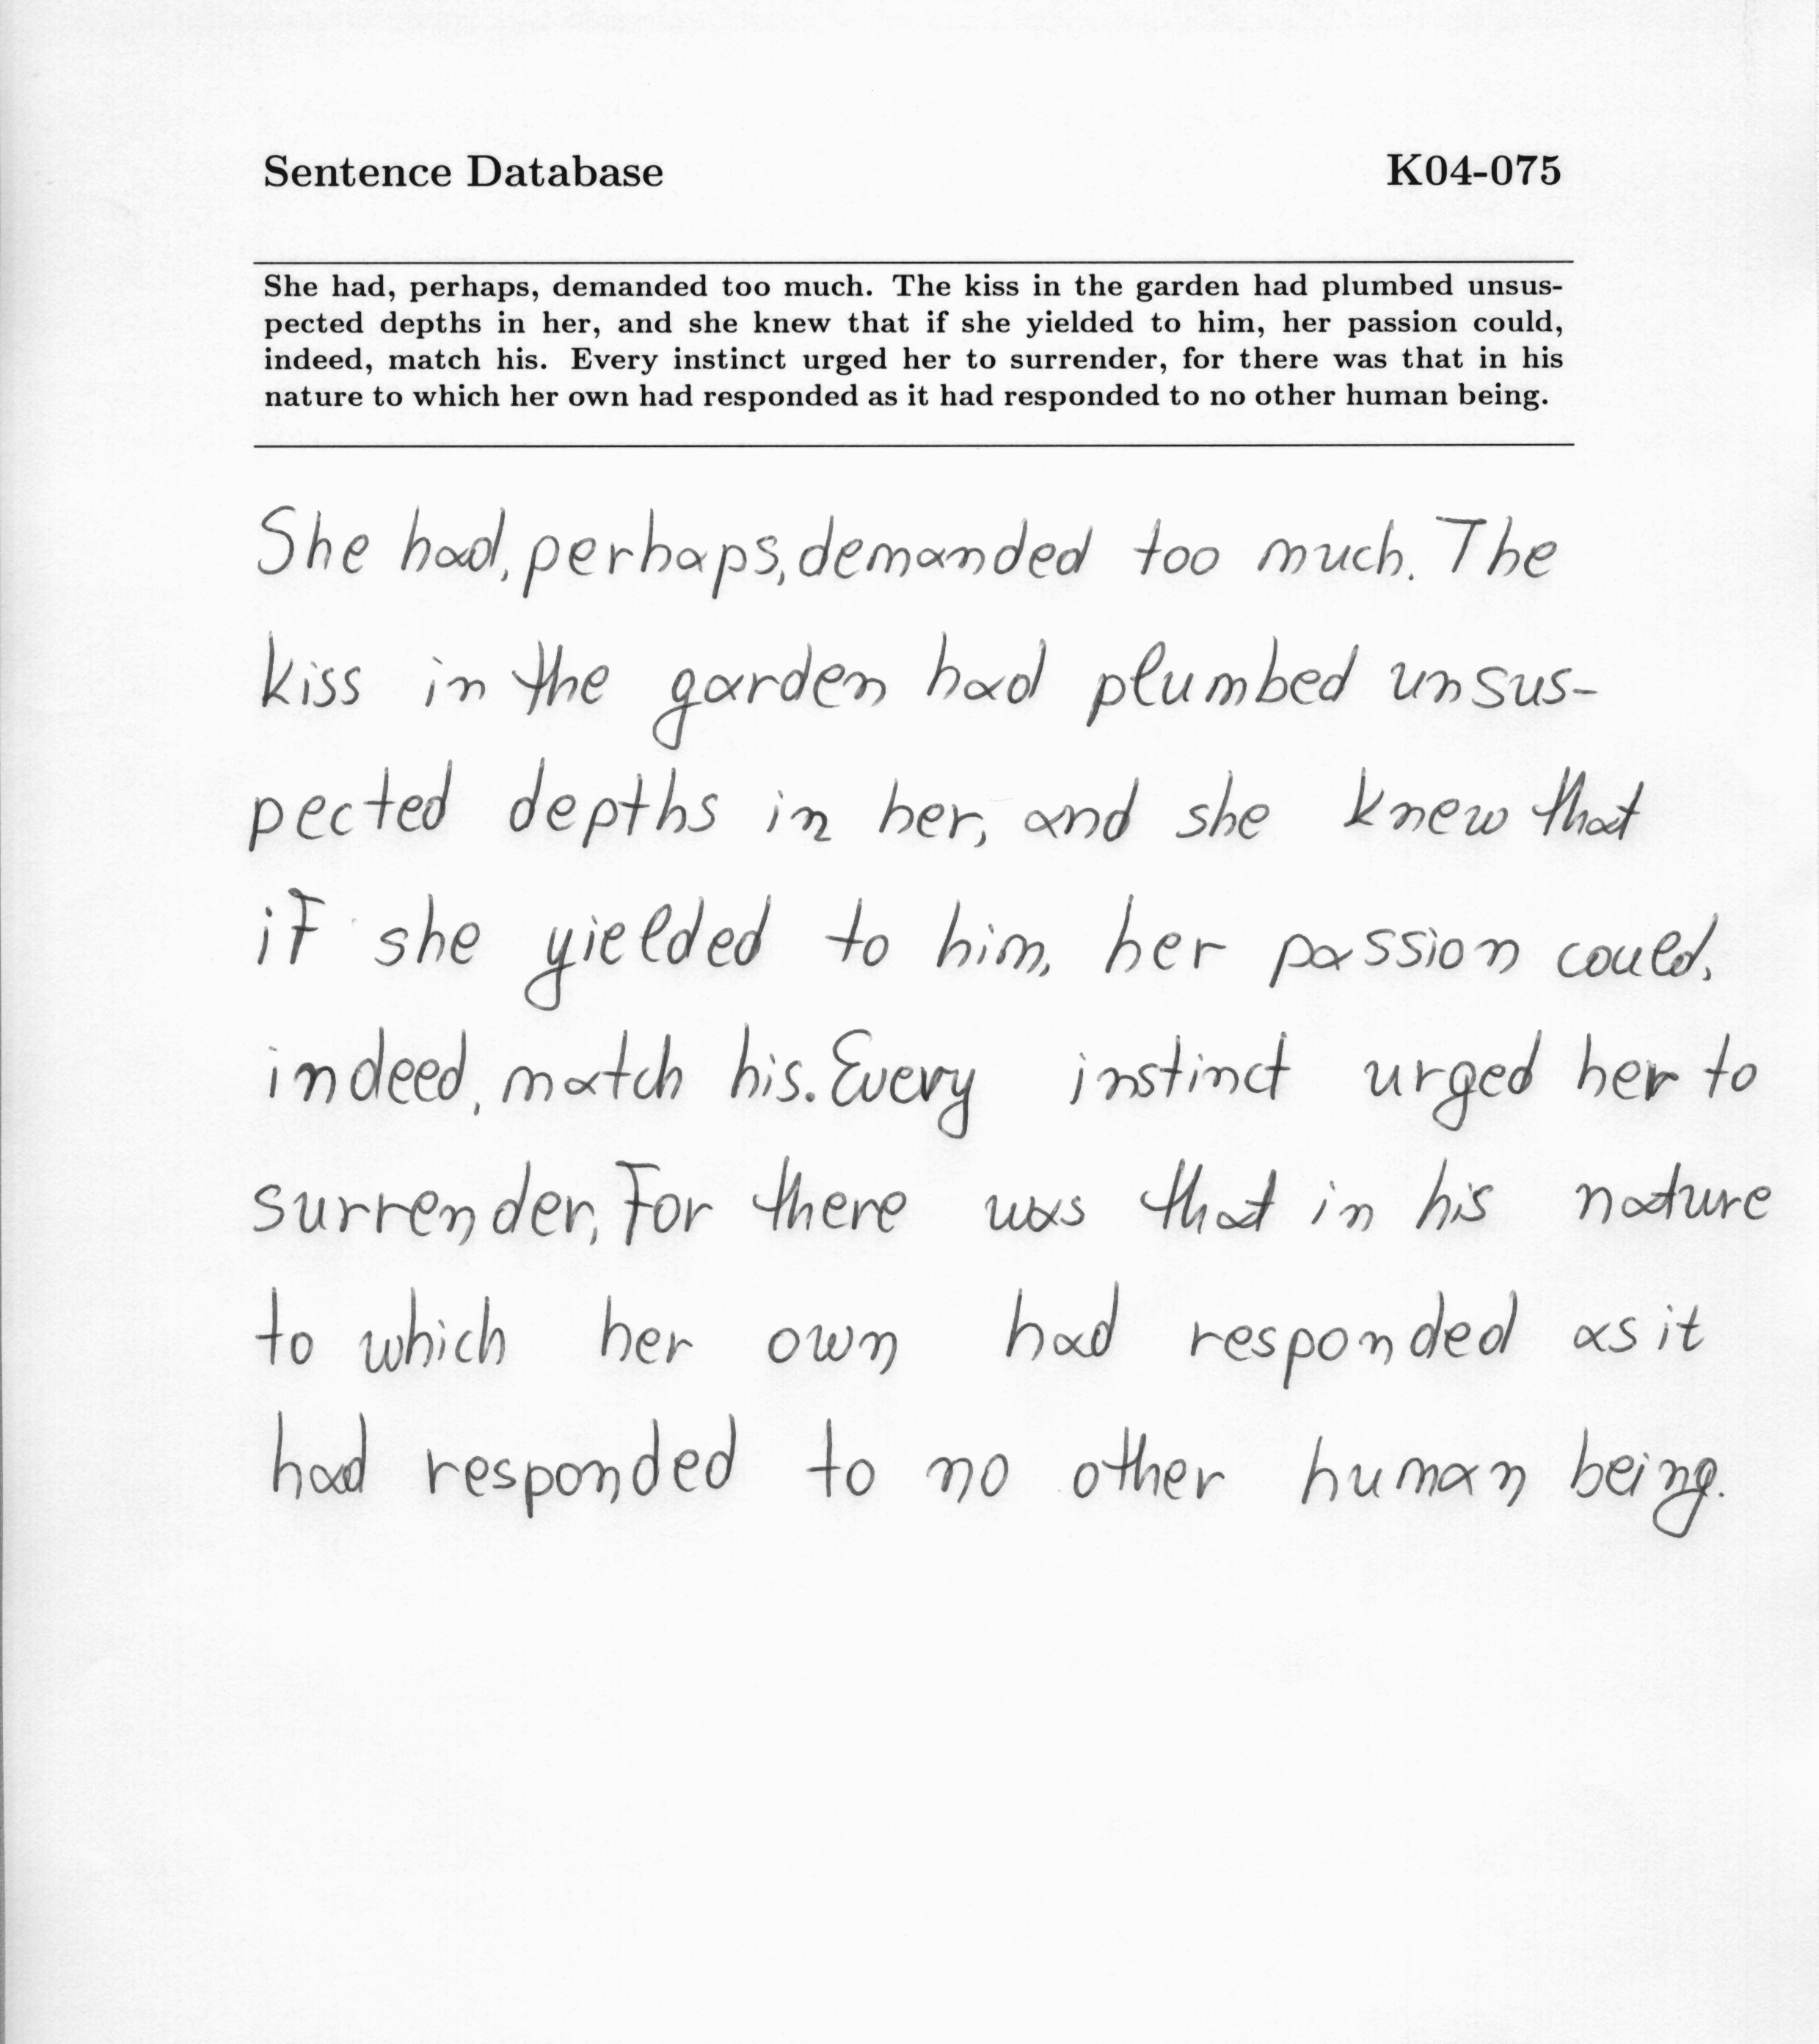 Sentence Database K04-075
She had, perhaps, demanded too much. The kiss in the garden had plumbed unsus-
pected depths in her, and she knew that if she yielded to him, her passion could,
indeed, match his. Every instinct urged her to surrender, for there was that in his
nature to which her own had responded as it had responded to no other human being.
She had, perhaps, demanded too much. The
kiss in the garden had plumbed unsus-
pected depths in her, and she knew that
if she yielded to him, her passion could,
indeed, match his. Every instinct urged her to
surrender, for there was that in his nature
to which her own had responded as it
had responded to no other human being.